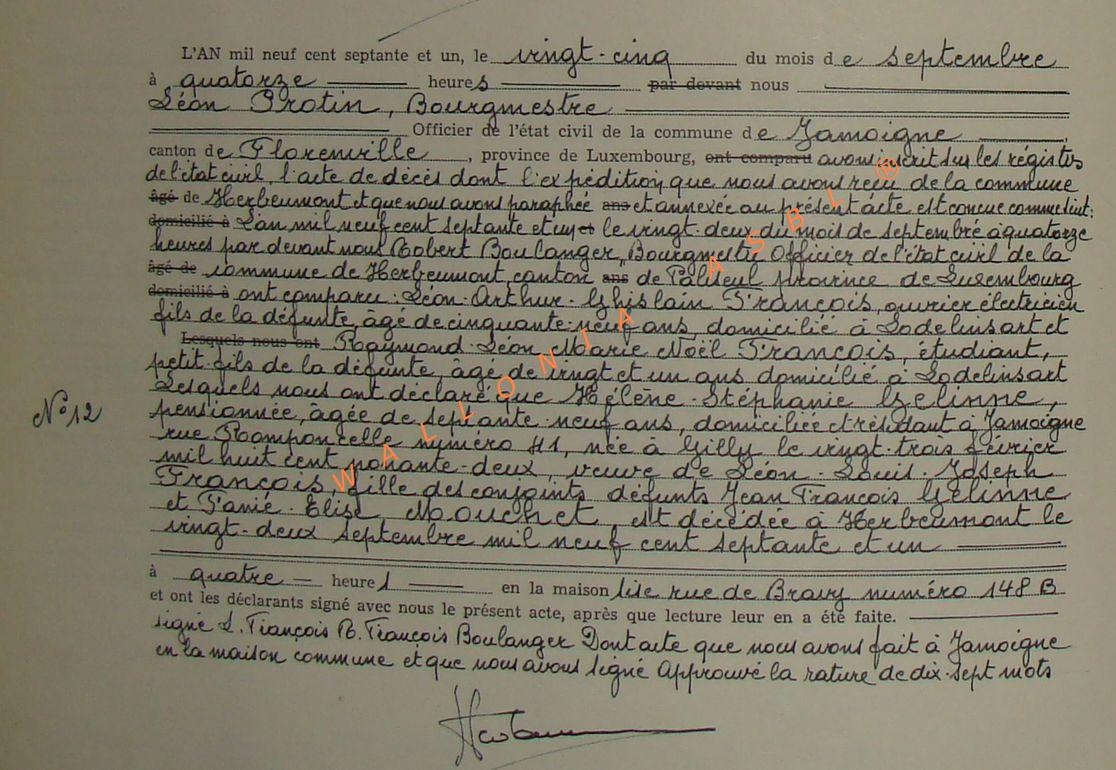 L'AN mil neuf cent septante et un, le vingt-cinq du mois de septembre
à quatorze heures par devant nous
Léon Protin, Bourgmestre
Officier de l'état civil de la commune de Jamoigne
canton de Florenville, province de Luxembourg, ont comparu avons inscrit sur les régistres
de l'état civil, l'acte de décès dont l'expédition que nous avons reçu de la commune
âgé de Herbeumont et que nous avons paraphée ans et annexée au présent acte est conçue comme suit:
domicilié à L'an mil neuf cent septante et un et le vingt-deux du mois de septembre à quatorze
heures par devant nous Robert Boulanger, Bourgmestre Officier de l'état civil de la
âgé de commune de Herbeumont, canton ans de Paliseul province de Luxembourg
domicilié à ont comparu: Léon-Arthur-Ghislain François, ouvrier électricien
fils de la défunte, âgé de cinquante-neuf ans, domicilié à Lodelinsart et
Lesquels nous ont Raymond-Léon Marie Noël François, étudiant,
petit-fils de la défunte, âgé de vingt et un ans domicilié à Lodelinsart
Lesquels nous ont déclaré que Hélène-Stéphanie Gelinne,
N° 12
pensionnée, âgée de septante-neuf ans, domiciliée et résidant à Jamoigne
rue Romponcelle numéro 41, née à Gilly le vingt-trois février
mil huit cent nonante-deux, veuve de Léon-Louis-Joseph
François, fille des conjoints défunts Jean François Gelinne
et Fanie-Elise Mouchet, est décédée à Herbeumont le
vingt-deux septembre mil neuf cent septante et un
à quatre heures en la maison sise rue de Bravy numéro 148 B
et ont les déclarants signé avec nous le présent acte, après que lecture leur en a été faite.
signé L. François R. François Boulanger Dont acte que nous avons fait à Jamoigne
en la maison commune et que nous avons signé Approuvé la rature de dix-sept mots
WALLONIA ASBL ®